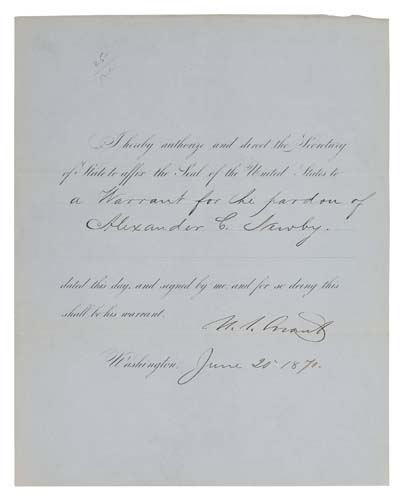 I hereby authorize and direct the Secretary
of State to affix the Seal of the United States to
a Warrant for the pardon of
Alexander C. Newby.
dated this day, and signed by me, and for so doing this
shall be his warrant.
U. S. Grant
Washington, June 25 1870.